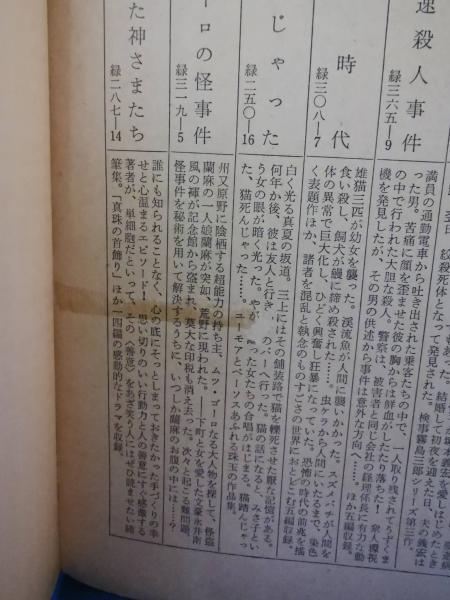 速殺人事件
緑三六五―9
満員の通勤電車から吐き出された乗客たちの中で、一人取り残されてうずくま
った男。苦痛に顔を歪ませた彼の胸からは鮮血がしたたり落ちた！ 衆人環視
の中で行われた大胆な殺人。警察は、被害者と同じ会社の経理係長に有力な動
機を発見したが、その男の供述から事件は意外な方向へ……。ほか五編収録。
時代
緑三〇八―7
雄猫三匹が幼女を襲った。渓流魚が人間に襲いかかった。スズメバチが人間を
食い殺し、飼犬が鰻に締め殺された……。虫ケラから人間にいたるまで、染色
体の異常で巨大化し、ひどく興奮し狂暴になっていた。恐怖の時代の前兆を描
く表題作ほか、諸者を混乱と執念のものすごさの世界におとしこむ五編収録。
じゃった
緑二五〇―16
白く光る真夏の坂道。三上にはその舗装路で猫を轢死させた厭な記憶がある。
何年か後、彼は友人と行き
のバーへ行った。猫の話になると、みさ子とい
う女の眼が暗く光った。やが
った女たちの合唱がはじまる。猫踏んじゃっ
た、猫死んじゃった……。ユーモアとペーソスあふれる珠玉の作品集。
ーロの怪事件
緑三一九―5
州又原野に陰栖する超能力の持ち主、ムツ・ゴーロなる大人物を探して、怪盗
蘭麻の一人娘蘭麻が突如、荒野に現われた。――下町と女を愛した文豪永井南
風の褌が記念館から盗まれ、莫大な印税も消え去った。次々と起こる難問題、
怪事件を秘術を用いて解決するうちに、いつしか蘭麻のお腹の中には……？
た神さまたち
緑二八七―14
誰にも知られることなく、心の底にそっとしまっておきたかった手づくりの幸
せと心温まるエピソード！ 思い切りのいい行動力と人の善意にすぐ感激する
著者が、単細胞だといって、その〈善意〉をあざ笑う人にはぜひ読ませたい随
筆集。「真珠の首飾り」ほか一四編の感動的なドラマを収録。